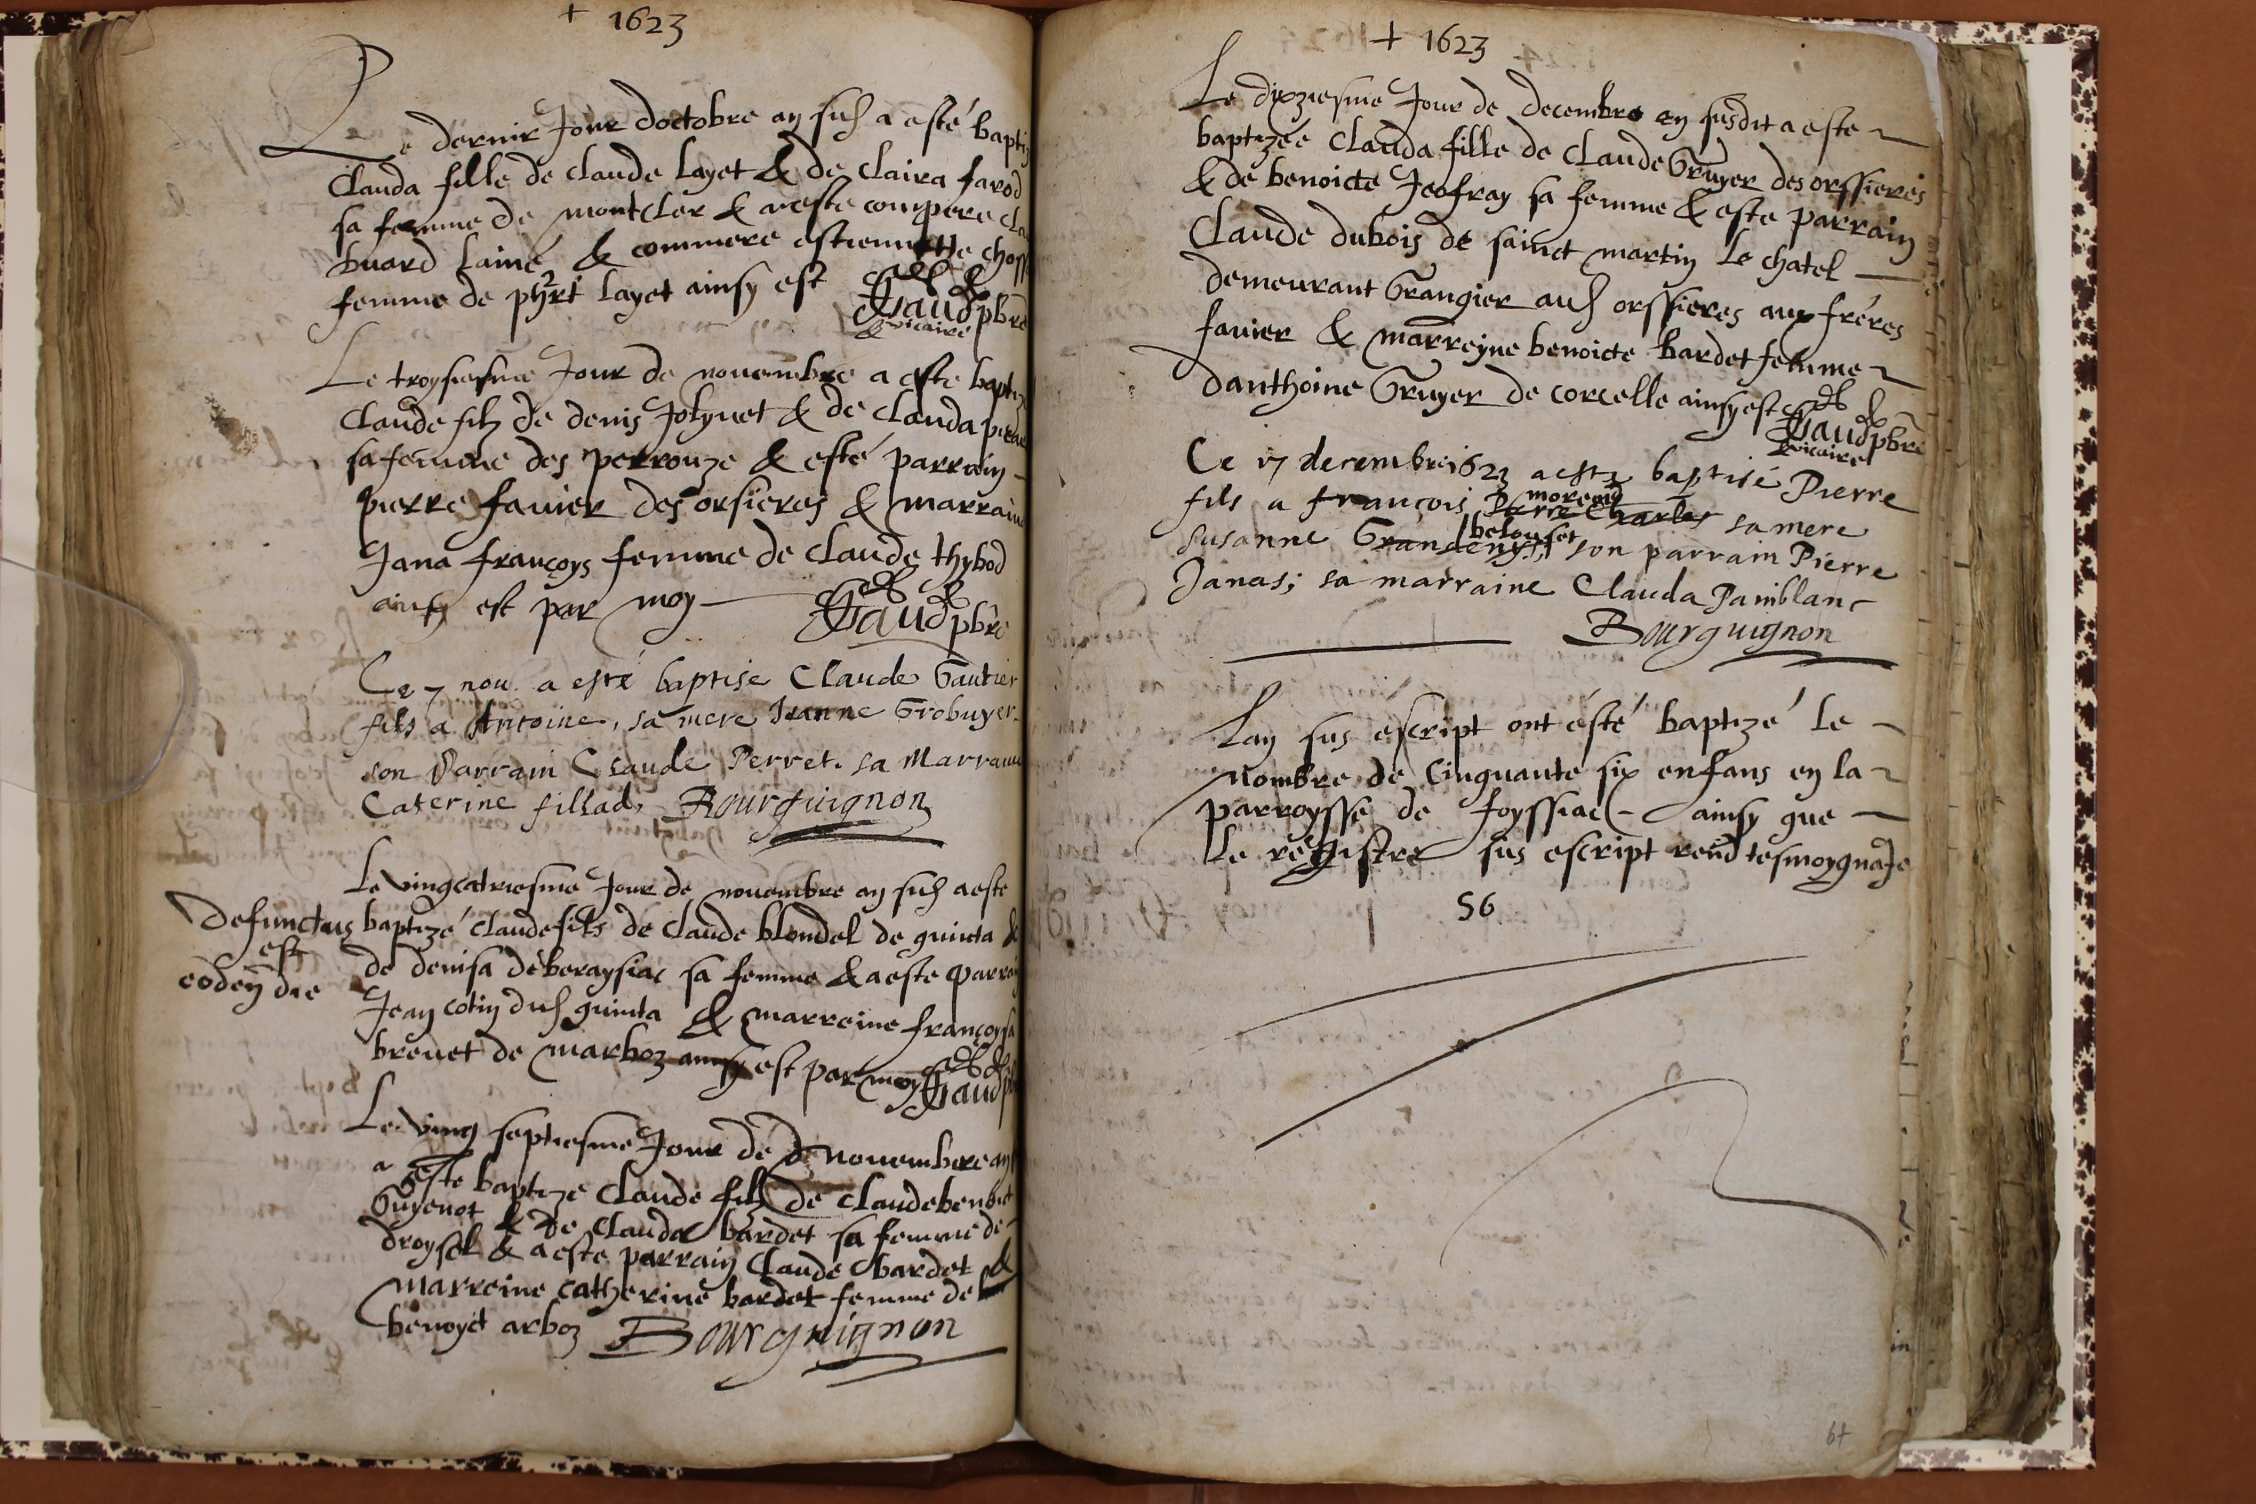 + 1623
Le dernir Jour doctobre an susd a esté bapti
Clauda fille de claude layet & de claira farod
sa femme de montcler & a este compere cla
buard lainé & commere estiennette
femme de layet ainsy est
pbre
vicaire
Le troysiesme Jour de novembre a este baptiz
Claude filz de denis Jolyvet & de clauda
sa femme des perrouze & esté parrain
pierre favier des orsieres & marraine
Jana françoys femme de claude thybod
ainsy est par moy
pbre
Ce 7 nov. a esté baptise Claude Gautier
fils a Antoine, sa mere Jeanne Grobuyer
son Parrain Claude Perret. sa Marraine
Caterine fillad, Bourguignon
Le vingcatriesme Jour de novembre an susd a este
defunctus
est
eodem die
baptizé claude fils de claude blondel de quinta &
de denisa deberaysiac sa femme & a este parrain
Jean cotin dud quinta & marreine françoysa
brevet de marboz ainsy est par moy
Le ving septiesme Jour de de novembre an
a este baptize claude filz de claude benoict
Guyenot & de clauda bardet sa femme de
droysel & a este parrain claude bardet &
marreine catherine bardet femme de
benoyct arboz Bourguignon
+ 1623
Le dixziesme Jour de decembre an susdit a este
baptizée clauda fille de claude Gruyer des orssieres
& de benoicte Jeofray sa femme & este parrain
Claude dubois de sainct martin le chatel
demeurant Grangier aud orssieres aux fréres
favier & marreyne benoicte bardet femme
danthoine Gruyer de corcelle ainsy est
pbre
vicaire
Ce 17 decembre 1623 a esté baptisé Pierre
fils a françois Pierre Charles morend sa mere
Susanne belouset son parrain Pierre
Janas; sa marraine Clauda Painblanc
Bourguignon
Lan sus éscript ont ésté baptizé le
nombre de cinquante six enfans en la
parroysse de foyssiac ainsy que
le régistre sus escript rend tesmoygnage
56